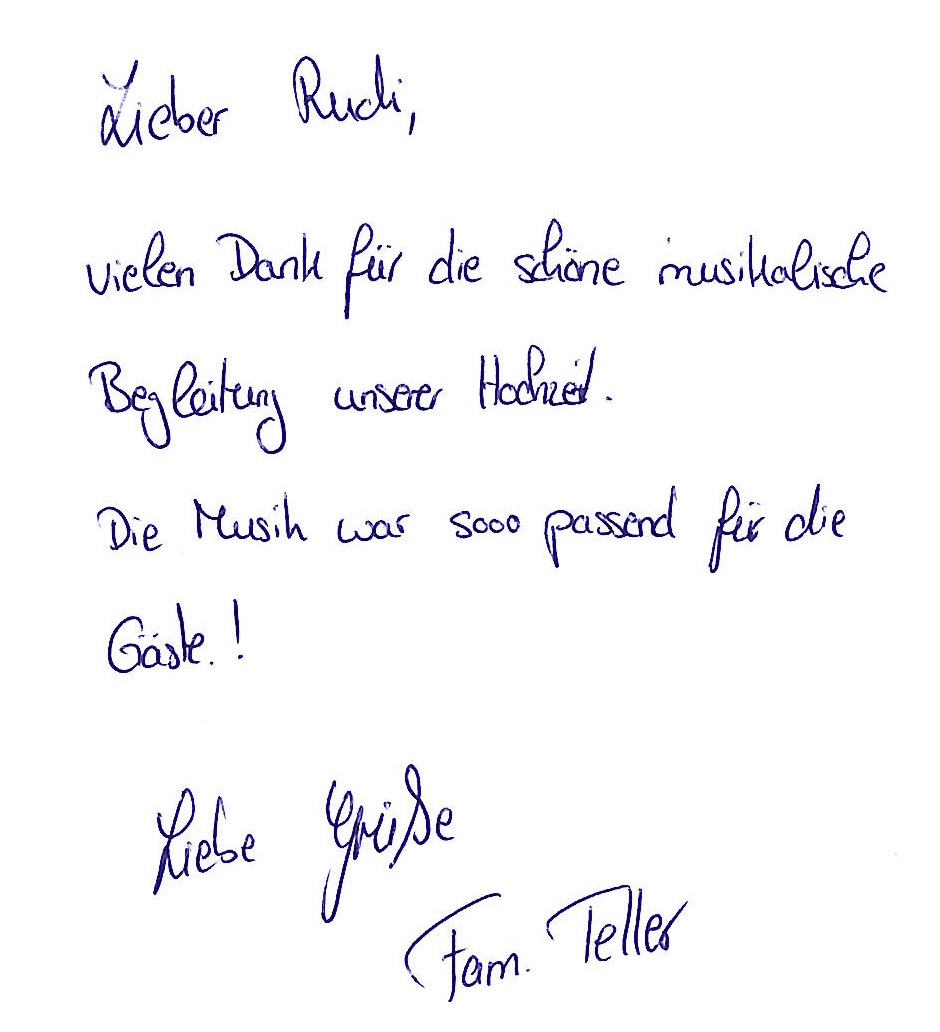 Lieber Rudi,
vielen Dank für die schöne musikalische
Begleitung unserer Hochzeit.
Die Musik war sooo passend für die
Gäste.!
Liebe Grüße
Fam. Teller